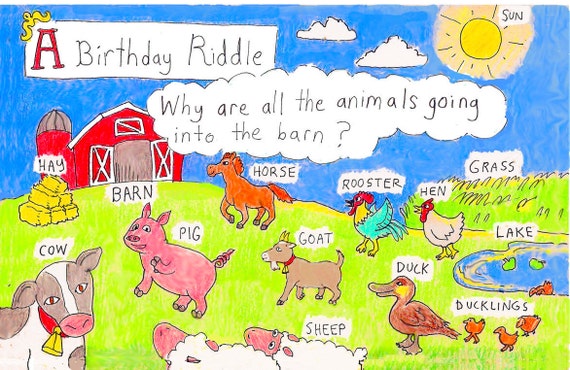 A Birthday Riddle
SUN
Why are all the animals going
into the barn?
HAY
BARN
HORSE
ROOSTER
HEN
GRASS
COW
PIG
GOAT
LAKE
DUCK
DUCKLINGS
SHEEP